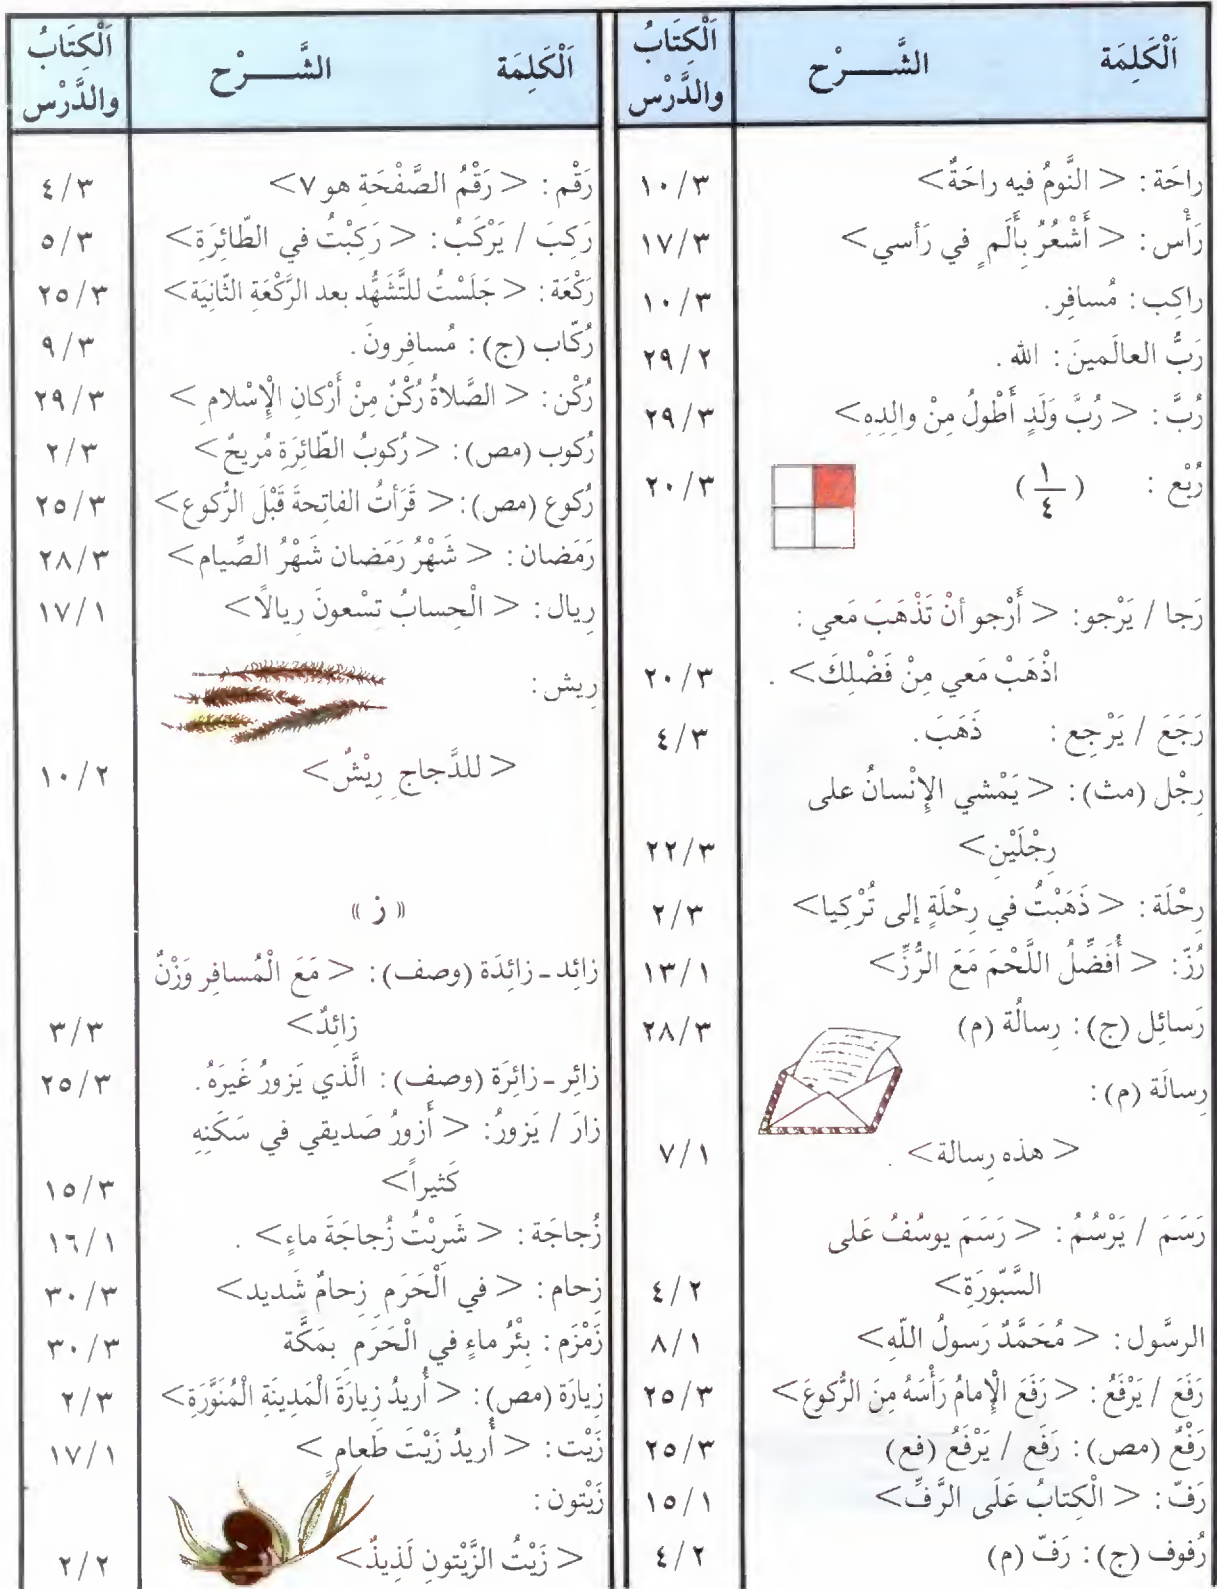 اَلْكَلِمَة الشَّـــرْح اَلْكِتَابُ والدَّرْس
راحَة : < النَّومُ فيه راحَةٌ> ١٠/٣
رَأْس : < أَشْعُرُ بِأَلَمٍ في رَأسي> ١٧/٣
راكِب : مُسافِر. ١٠/٣
رَبُّ العالَمينَ : الله . ٢٩/٢
رُبَّ : < رُبَّ وَلَدٍ أَطْولُ مِنْ والِدِهِ> ٢٩/٣
رُبْع : (١/٤) ٢٠/٣
رَجا / يَرْجو: < أَرْجو أنْ تَذْهَبَ مَعي :
اذْهَبْ مَعي مِنْ فَضْلِكَ> . ٢٠/٣
رَجَعَ / يَرْجِع : ذَهَبَ. ٤/٣
رِجْل (مث) : < يَمْشي الإنْسانُ على
رِجْلَيْنِ> ٢٢/٣
رِحْلَة : < ذَهَبْتُ في رِحْلَةٍ إلى تُرْكِيا> ٢/٣
رُزّ: < أُفَضِّلُ اللَّحْمَ مَعَ الرُّزِّ> ١٣/١
رَسائِل (ج) : رِسالُة (م) ٢٨/٣
رِسالَة (م) :
< هذه رِسالة> . ٧/١
رَسَمَ / يَرْسُمُ : < رَسَمَ يوسُفُ عَلى
السَّبّورَةِ> ٤/٢
الرسَّول : < مُحَمَّدٌ رَسولُ اللّهِ> ٨/١
رَفَعَ / يَرْفَعُ : < رَفَعَ الإِمامُ رَأْسَهُ مِنَ الرُّكوعَ> ٢٥/٣
رَفْعٌ (مص) : رَفَع / يَرْفَعُ (فع) ٢٥/٣
رَفّ : < الْكِتابُ عَلَى الرَّفِّ> ١٥/١
رُفوف (ج) : رَفّ (م) ٤/٢
اَلْكَلِمَة الشَّـــرْح اَلْكِتَابُ والدَّرْس
رَقْم : < رَقْمُ الصَّفْحَةِ هو ٧> ٤/٣
رَكِبَ / يَرْكَبُ : < رَكِبْتُ في الطّائِرَةِ> ٥/٣
رَكْعَة : < جَلَسْتُ للتَّشَهُّد بعد الرَّكْعَةِ الثّانِيَة> ٢٥/٣
رُكّاب (ج) : مُسافِرونَ . ٩/٣
رُكْن : < الصَّلاةُ رُكْنٌ مِنْ أَرْكانِ الإِسْلامِ > ٢٩/٣
رُكوب (مص) : < رُكوبُ الطّائِرَةِ مُريحٌ> ٢/٣
رُكوع (مص) : < قَرَأتُ الفاتِحةَ قَبْلَ الرُّكوع> ٢٥/٣
رَمَضان : < شَهْرُ رَمَضان شَهْرُ الصِّيام> ٢٨/٣
رِيال : < الْحِسابُ تِسْعونَ رِيالًا> ١٧/١
رِيش :
< للدَّجاجِ رِيْشٌ> ١٠/٢
« ز »
زائِد - زائِدَة (وصف) : < مَعَ الْمُسافِرِ وَزْنٌ
زائِدٌ> ٣/٣
زائِر - زائِرَة (وصف) : الَّذي يَزورُ غَيرَهُ. ٢٥/٣
زارَ / يَزورُ: < أَزورُ صَديقي في سَكَنِهِ
كَثيراً> ١٥/٣
زُجاجَة : < شَرِبْتُ زُجاجَةَ ماءٍ> . ١٦/١
زِحام : < في اَلْحَرَمِ زِحامٌ شَديد> ٣٠/٣
زَمْزَم : بِئْرُ ماءٍ في الْحَرَمِ بِمَكَّة ٣٠/٣
زِيارَة (مص) : < أُريدُ زِيارَةَ الْمَدِينَةِ الْمُنَوَّرَةِ> ٢/٣
زَيْت : < أُريدُ زَيْتَ طَعامٍ > ١٧/١
زَيْتون :
< زَيْتُ الزَّيْتونِ لَذِيذٌ> ٢/٢